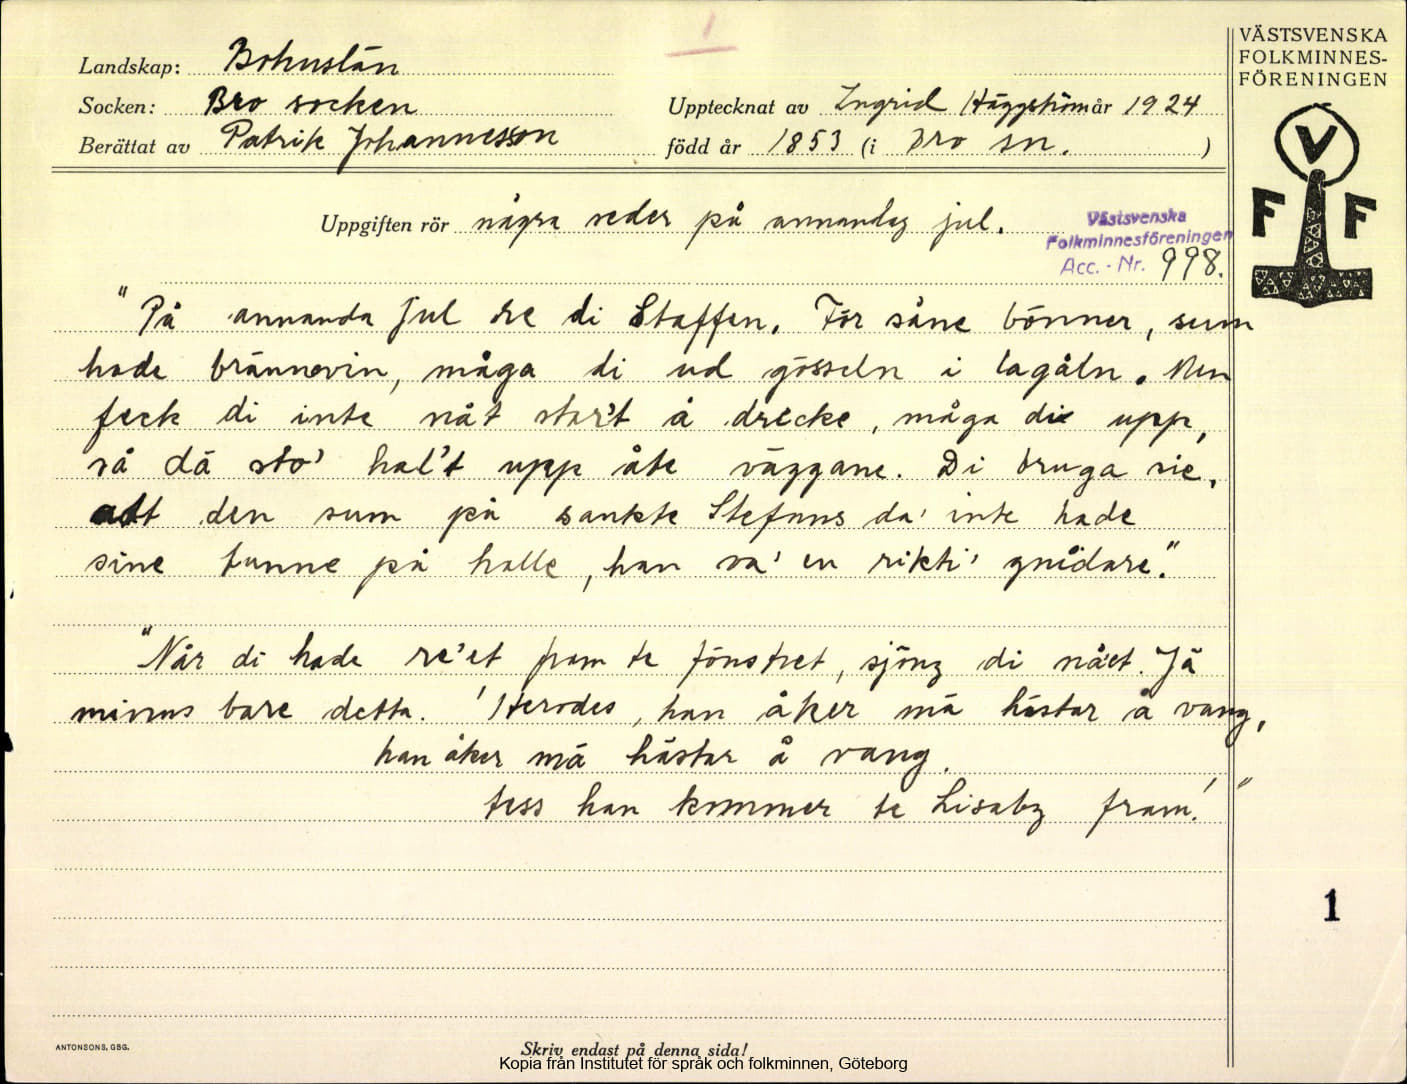 1
VÄSTSVENSKA
FOLKMINNES-
FÖRENINGEN
Landskap: Bohuslän
Socken: Bro socken
Upptecknat av Ingrid Häggström år 1924
Berättat av Patrik Johannesson
född år 1853 (i Bro sn. )
V
F F
Uppgiften rör några seder på annandag jul.
Västsvenska
Folkminnesföreningen
Acc. - Nr. 998.
"På annanda Jul re di Staffen. För såne bönner, sum
hade brännevin, måga di ud gösseln i lagåln. Men
feck di inte nåt star't å drecke, måga di upp,
så dä sto' hal't upp åte väggane. Di bruga sie,
att den sum på sankte Stefans da' inte hade
sine tunne på halle, han va' en rikti' gnidare."
"När di hade re'et fram te fönstret, sjöng di nå'et. Jä
minns bare detta. 'Herodes, han åker mä hästar å vang,
han åker mä hästar å vang.
tess han kommer te Lisaby fram!'"
1
ANTONSONS, GBG.
Skriv endast på denna sida!
Kopia från Institutet för språk och folkminnen, Göteborg